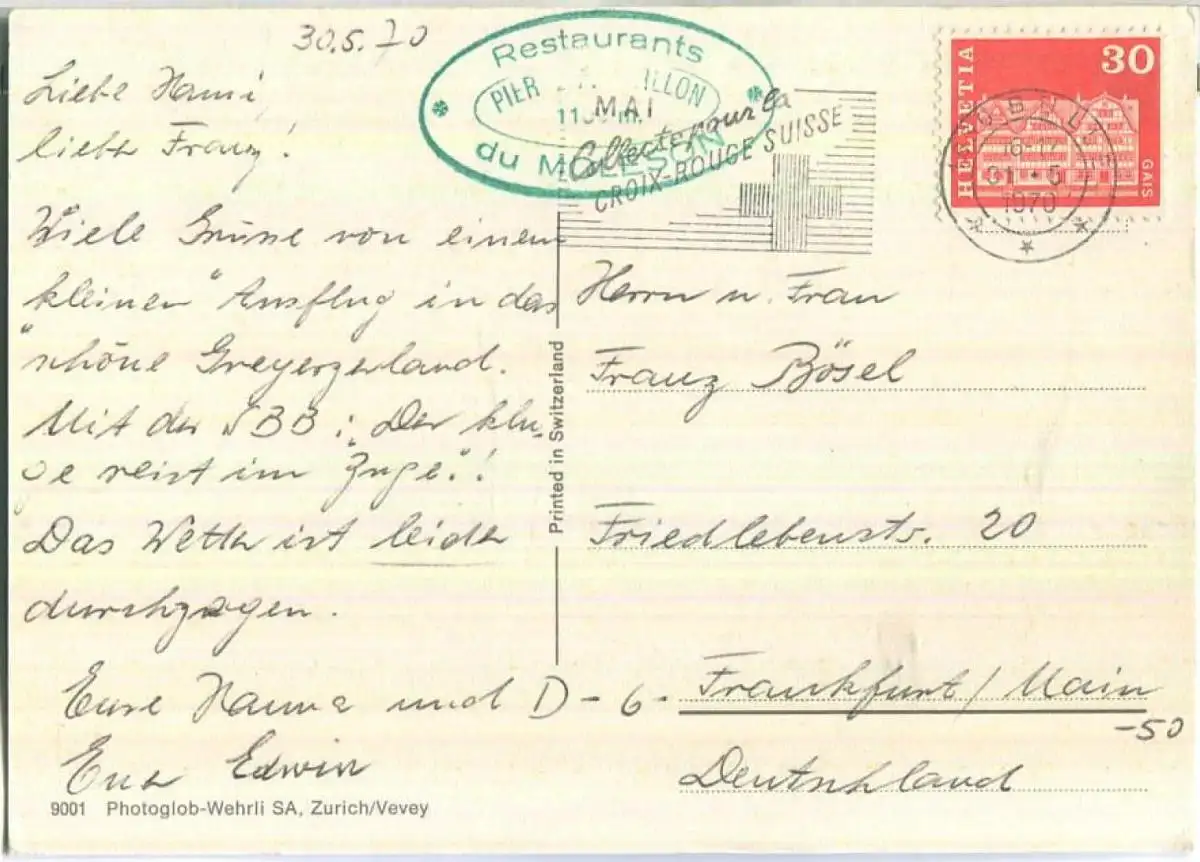 30.5.70
Liebe Hanni,
lieber Franz!
Viele Grüsse von einem
kleinen "Ausflug in das
"schöne Greyerzerland.
Mit der SBB: "Der klu-
ge reist im Zuge"!
Das Wetter ist leider
durchzogen.
Eure Hanna und
Euer Edwin
9001 Photoglob-Wehrli SA, Zurich/Vevey
Printed in Switzerland
Restaurants
PIER ILLON
du M
MAI
Collecte pour la
CROIX-ROUGE SUISSE
HELVETIA
30
GAIS
31 5
1970
Herrn u. Frau
Franz Bösel
Friedlebenstr. 20
D-6- Frankfurt/Main
-50
Deutschland